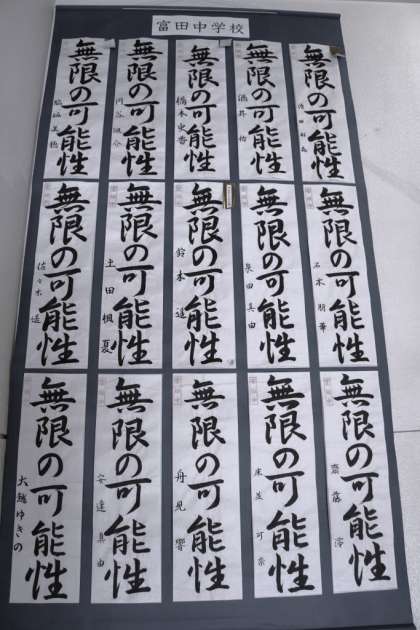 富田中学校
無限の可能性
無限の可能性
酒井
無限の可能性
橋本
無限の可能性
無限の可能性
無限の可能性
無限の可能性
奥田真由
無限の可能性
鈴木
無限の可能性
土田
無限の可能性
佐々木遥
無限の可能性
齋藤澪
無限の可能性
無限の可能性
舟見響
無限の可能性
安達真由
無限の可能性
大越ゆきの